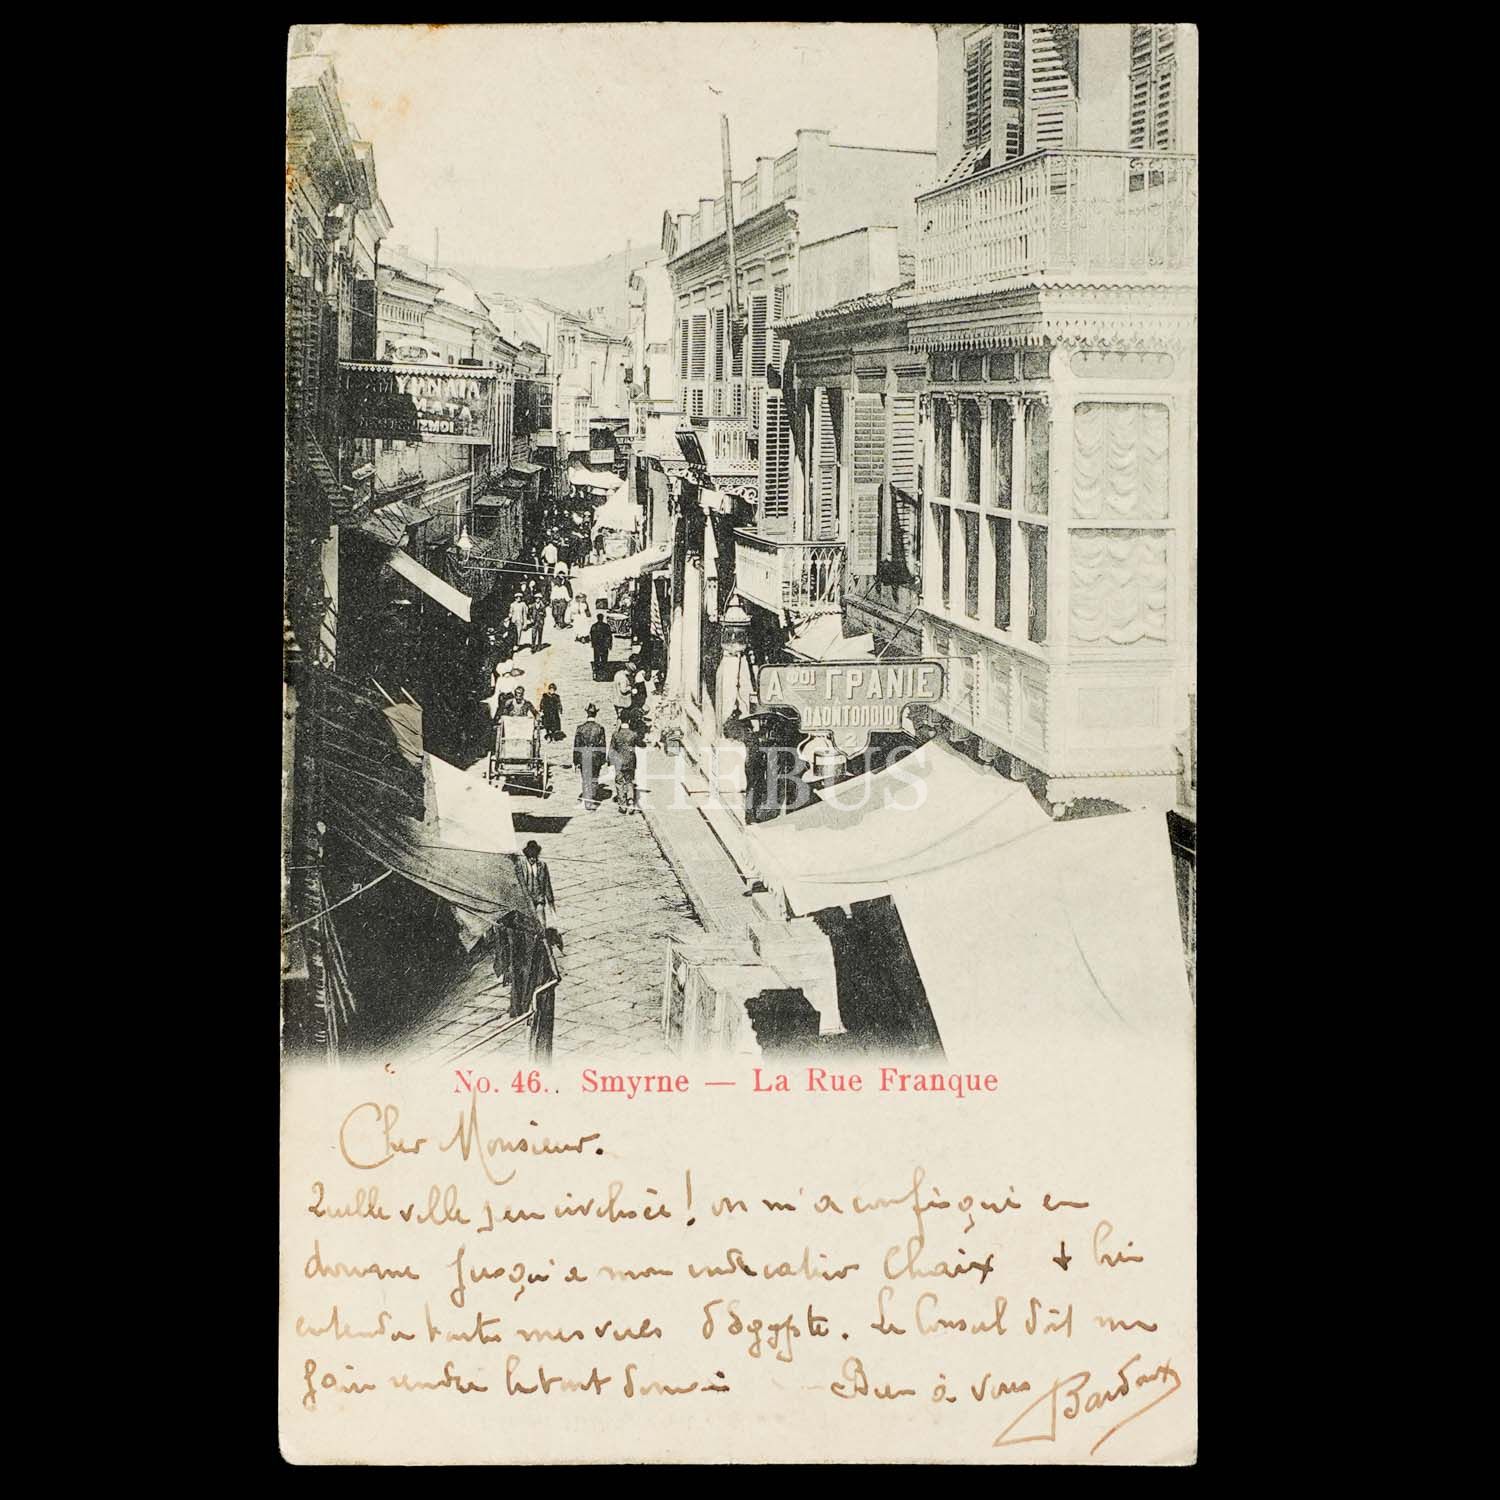 ΜΥΡΝΑΪ
Αφοι ΓΡΑΝΙΕ
ΟΔΟΝΤΟΠΟΙΟΙ
2
PHEBUS
No. 46. Smyrne — La Rue Franque
Cher Monsieur.
Quelle ville peu civilisée! on m'a confisqué en
douane jusqu'à mon indicateur Chaix + bien
entendu toutes mes vues d'Egypte. Le Consul doit me
faire rendre le tout demain Bien à vous